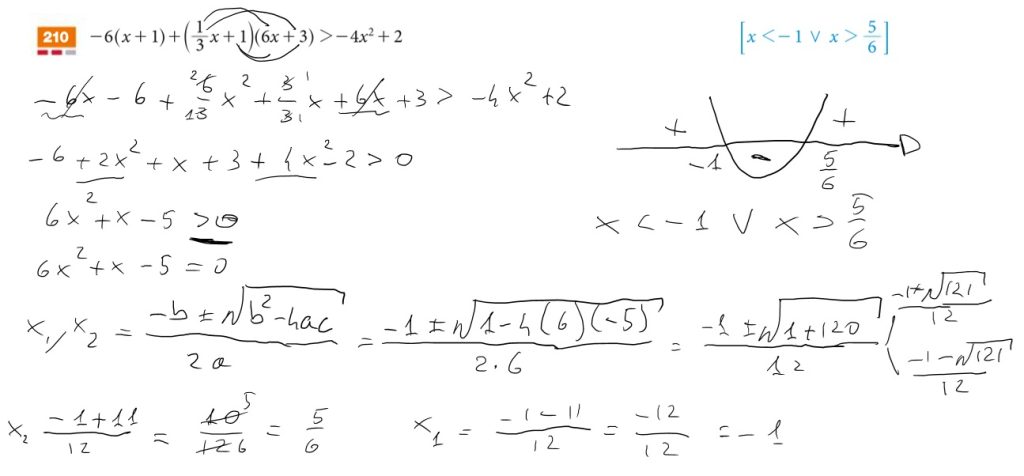 210 -6(x + 1) + (1/3 x + 1)(6x + 3) > -4x² + 2 [x < -1 ∨ x > 5/6]
-6x - 6 + 6/3 x² + 3/3 x + 6x + 3 > -4x² + 2
-6 + 2x² + x + 3 + 4x² - 2 > 0
6x² + x - 5 > 0
6x² + x - 5 = 0
+ - +
-1 5/6
x < -1 ∨ x > 5/6
x₁, x₂ = (-b ± √(b² - 4ac))/(2a) = (-1 ± √(1 - 4(6)(-5)))/(2·6) = (-1 ± √(1 + 120))/12
(-1 + √121)/12
(-1 - √121)/12
x₂ (-1 + 11)/12 = 10/12 5/6 = 5/6 x₁ = (-1 - 11)/12 = -12/12 = -1